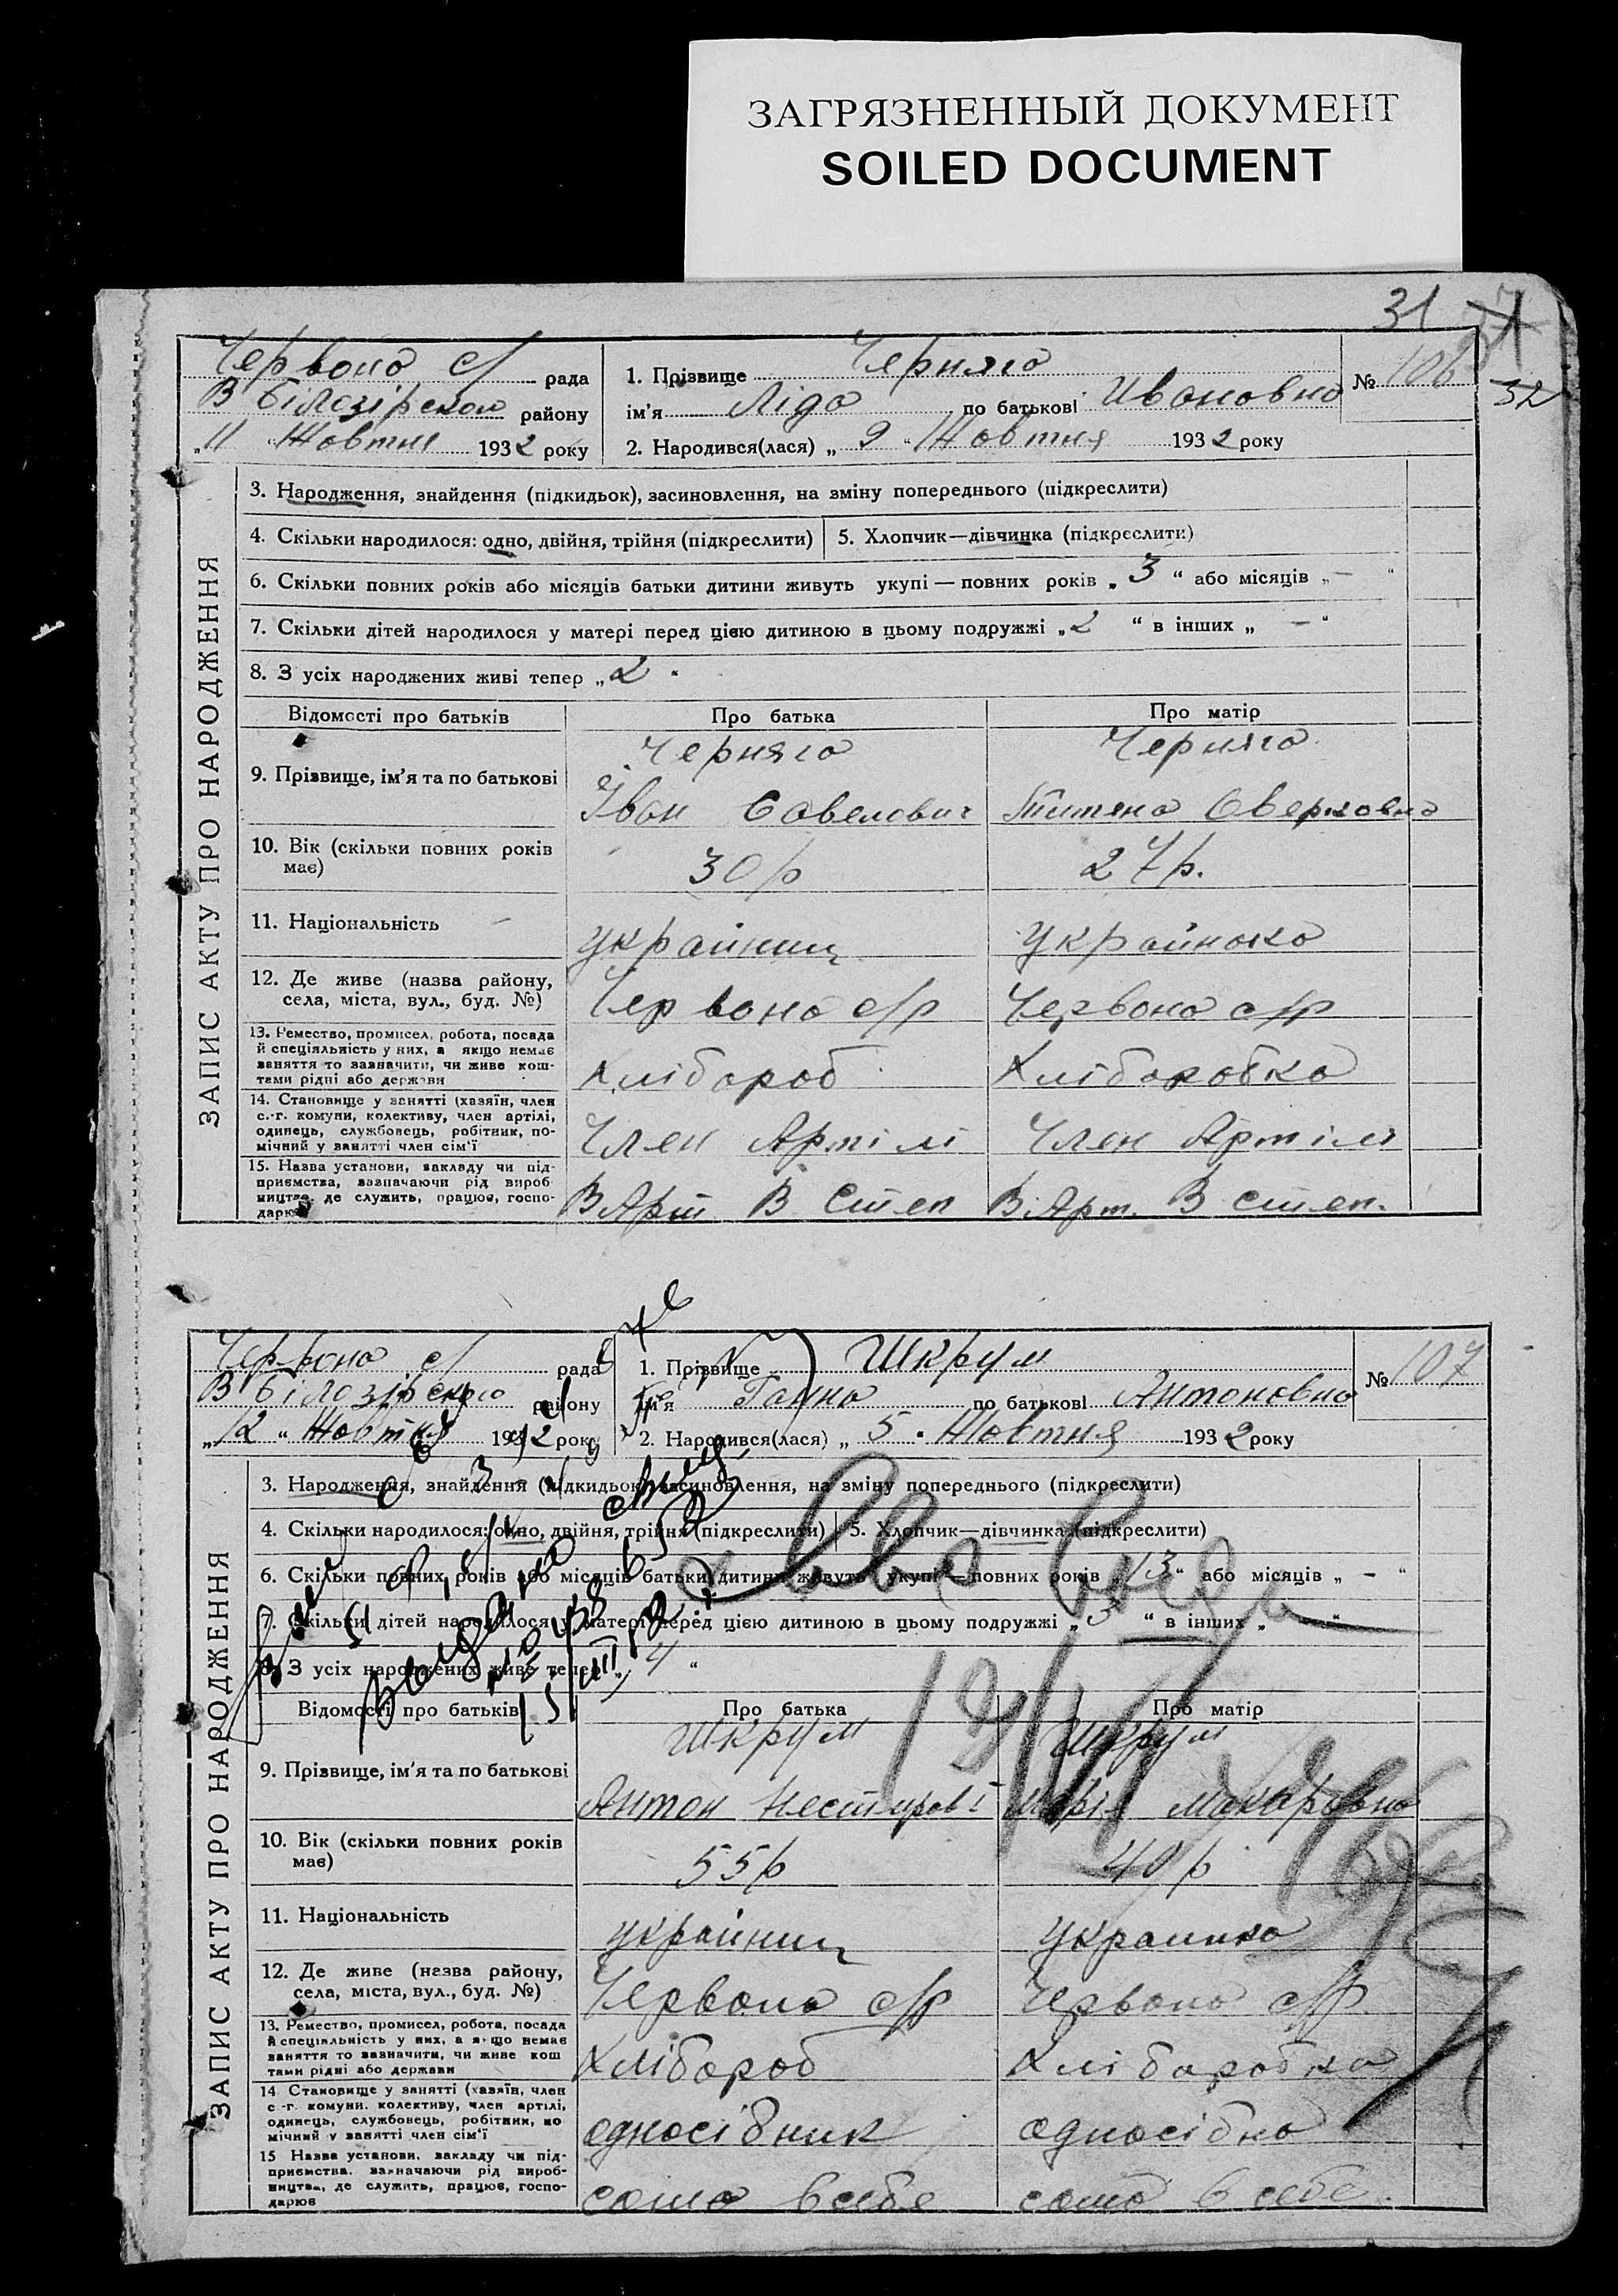 ЗАГРЯЗНЕННЫЙ ДОКУМЕНТ
SOILED DOCUMENT
31
32
Червона с/ рада
В Білозірського району
„11“ Жовтня 1932 року
1. Прізвище Черняга
ім’я Ліда по батькові Ивановна
2. Народився(лася) „9“ Жовтня 1932 року
№ 106
ЗАПИС АКТУ ПРО НАРОДЖЕННЯ
3. Народження, знайдення (підкидьок), засиновлення, на зміну попереднього (підкреслити)
4. Скільки народилося: одно, двійня, трійня (підкреслити) 5. Хлопчик—дівчинка (підкреслити)
6. Скільки повних років або місяців батьки дитини живуть укупі — повних років „3“ або місяців „—“
7. Скільки дітей народилося у матері перед цією дитиною в цьому подружжі „2“ в інших „—“
8. З усіх народжених живі тепер „2“
Відомості про батьків Про батька Про матір
Черняга Черняга
9. Прізвище, ім’я та по батькові
Іван Савелович Титяна
10. Вік (скільки повних років має) 30 р 27 р.
11. Національність україниц українка
12. Де живе (назва району, села, міста, вул., буд. №) Червона с/р Червона с/р
13. Ремество, промисел, робота, посада
й спеціяльність у них, а якщо немає
заняття то зазначити, чи живе кош-
тами рідні або держави
Хлібороб Хлібаробка
14. Становище у занятті (хазяїн, член
с.-г. комуни, колективу, член артілі,
одинець, службовець, робітник, по-
мічний у занятті член сім’ї
Член Артілі Член Артілі
15. Назва установи, закладу чи під-
приємства, зазначаючи рід вироб-
ництва, де служить, працює, госпо-
дарює
В Арт. В Степ В Арт. В Степ.
Червона с/ рада
В Білозірського району
„12“ Жовтня 1932 року
1. Прізвище Шкрум
ім’я Ганна по батькові Антоновна
2. Народився(лася) „5“ Жовтня 1932 року
№ 107
ЗАПИС АКТУ ПРО НАРОДЖЕННЯ
3. Народження, знайдення (підкидьок), засиновлення, на зміну попереднього (підкреслити)
4. Скільки народилося: одно, двійня, трійня (підкреслити) 5. Хлопчик—дівчинка (підкреслити)
6. Скільки повних років або місяців батьки дитини живуть укупі — повних років „13“ або місяців „—“
7. Скільки дітей народилося у матері перед цією дитиною в цьому подружжі „3“ в інших „ “
8. З усіх народжених живі тепер „4“
Відомості про батьків Про батька Про матір
Шкрум Шкрум
9. Прізвище, ім’я та по батькові
Антон Марія Макаровна
10. Вік (скільки повних років має) 55 р 40 р
11. Національність україниц
12. Де живе (назва району, села, міста, вул., буд. №) Червона с/р Червона с/р
13. Ремество, промисел, робота, посада
й спеціяльність у них, а якщо немає
заняття то зазначити, чи живе кош
тами рідні або держави
Хлібороб Хлібаробка
14. Становище у занятті (хазяїн, член
с.-г. комуни, колективу, член артілі,
одинець, службовець, робітник, по
мічний у занятті член сім’ї
односібник односібна
15 Назва установи, закладу чи під-
приємства, зазначаючи рід вироб-
ництва, де служить, працює, госпо-
дарює
сама в себе сама в себе.